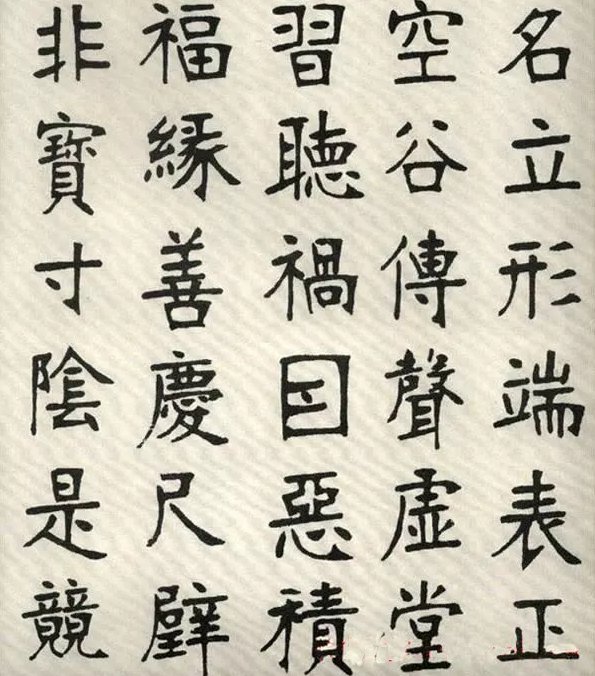 名立形端表正
空谷傳聲虛堂
習聽禍囙惡積
福緣善慶尺璧
非寶寸陰是競